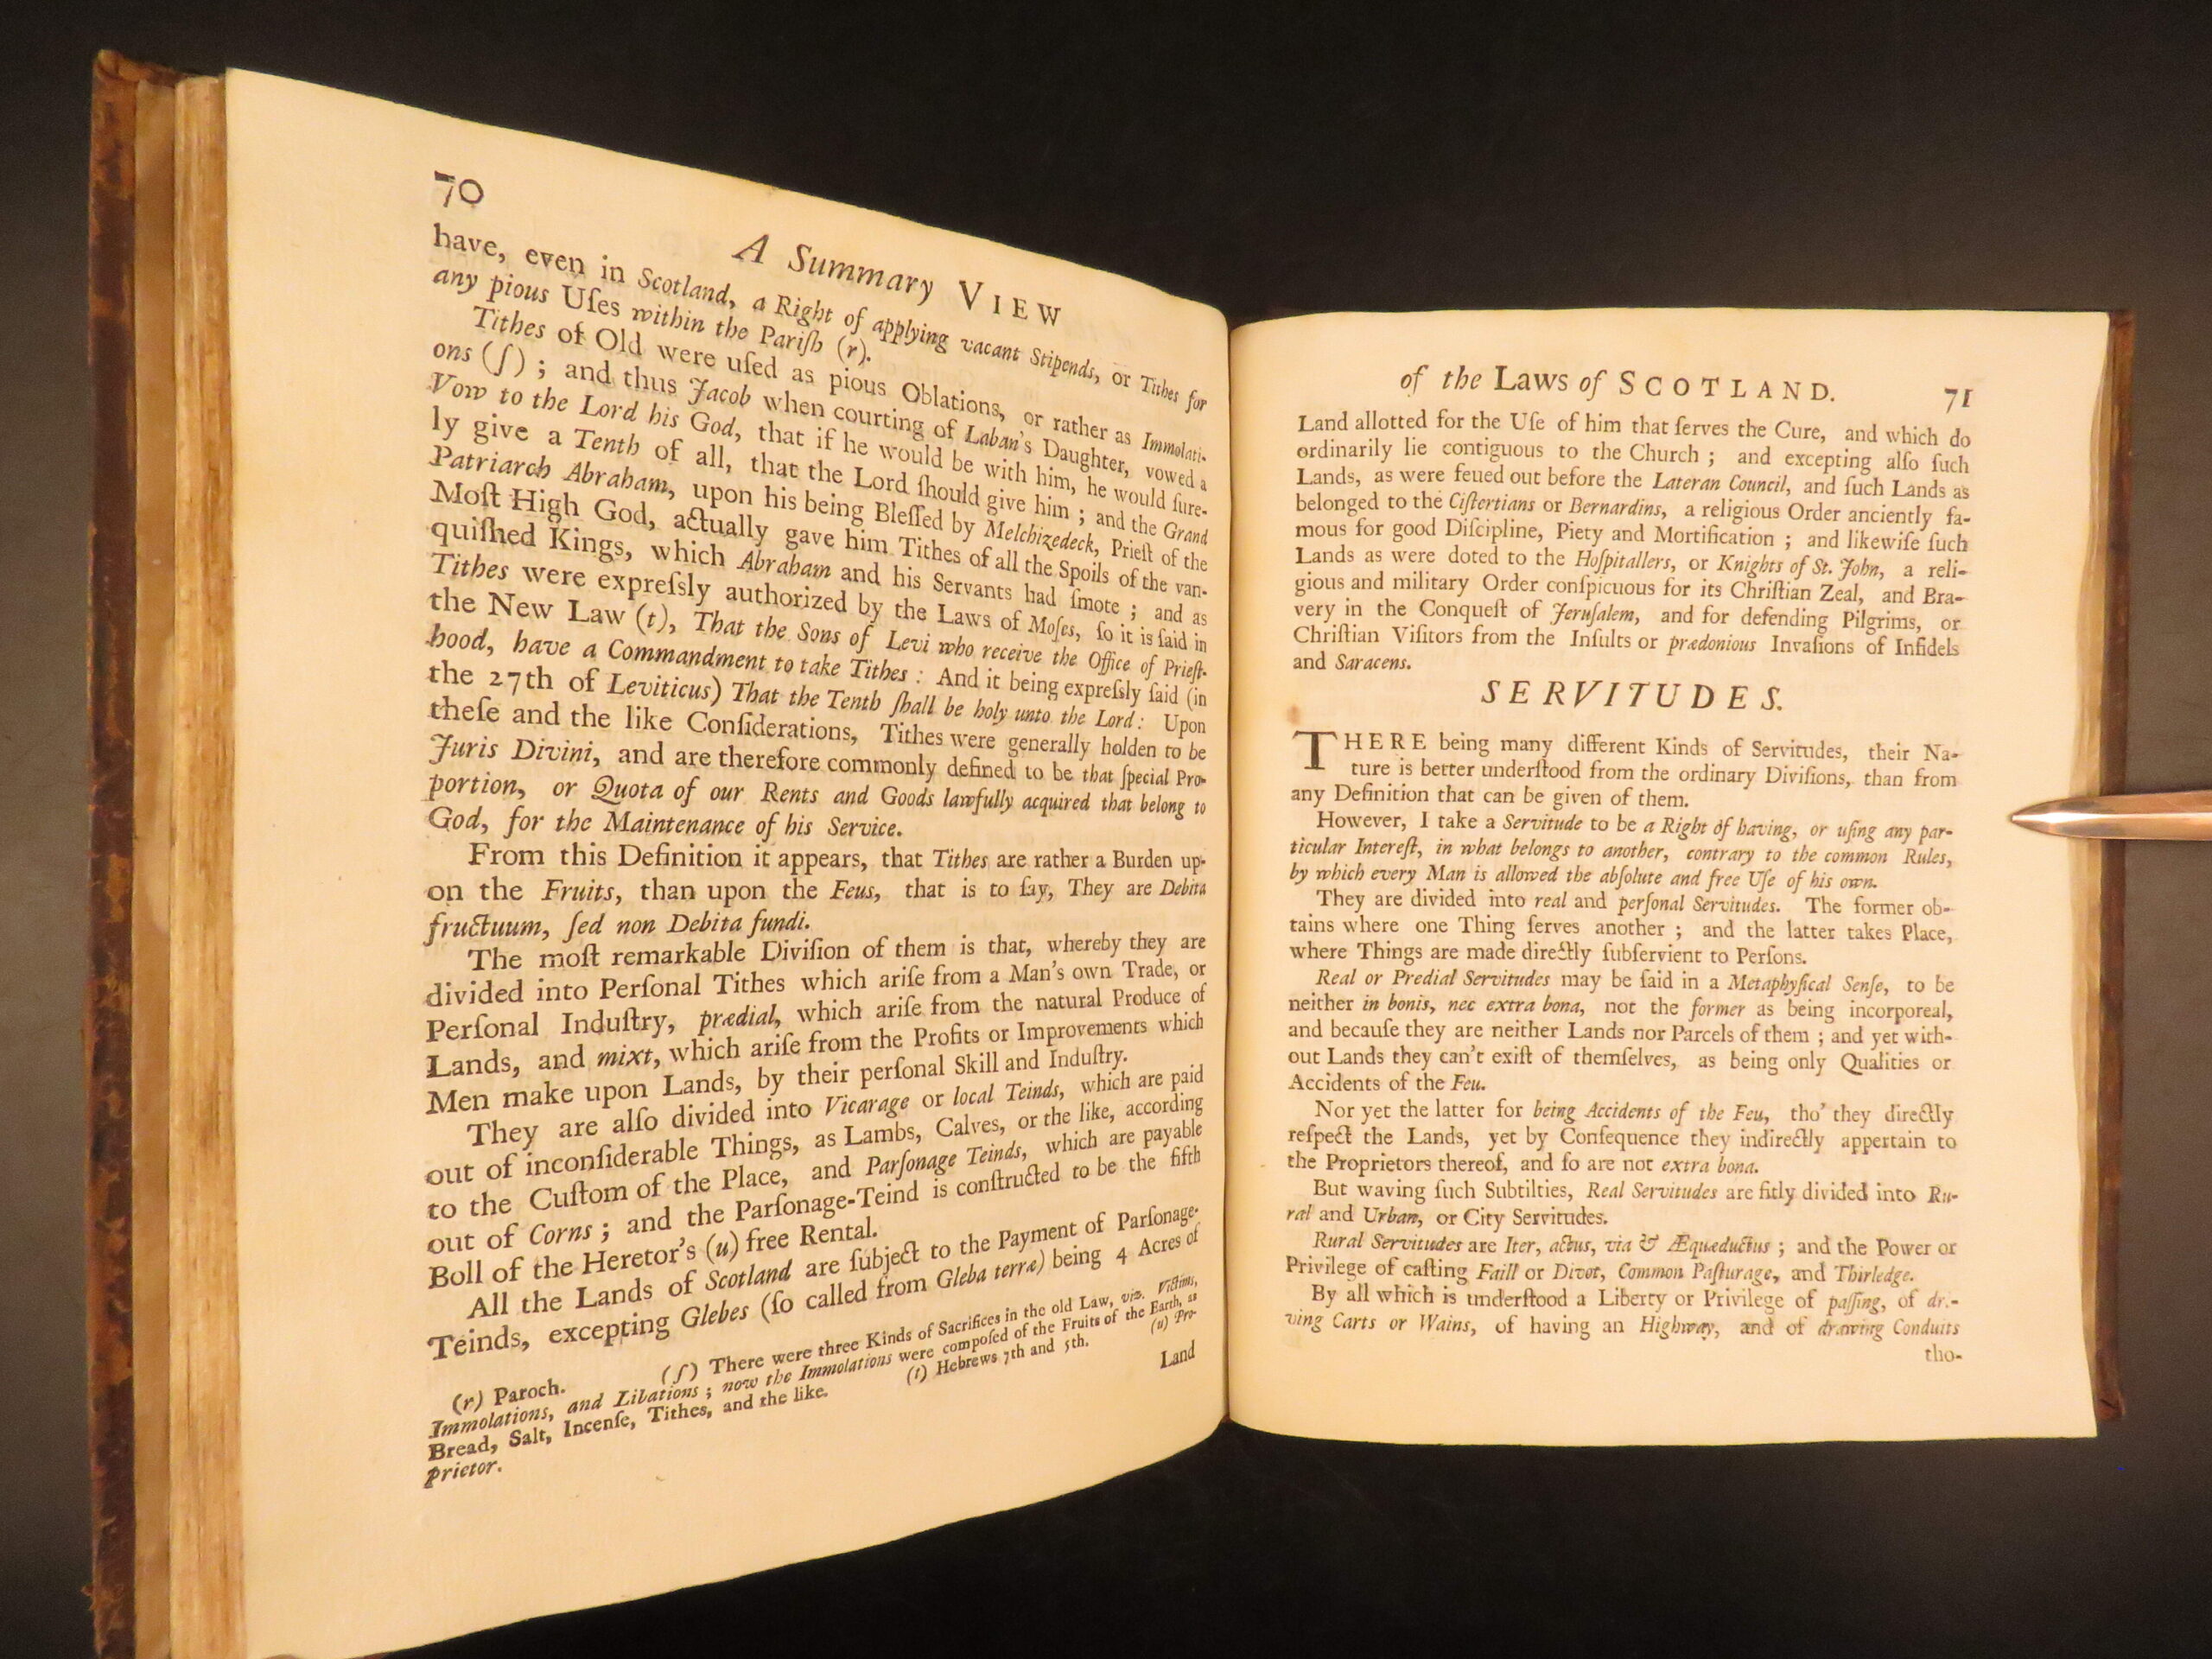 70
A Summary VIEW
have, even in Scotland, a Right of applying vacant Stipends, or Tithes for
any pious Uſes within the Pariſh (r).
Tithes of Old were uſed as pious Oblations, or rather as Immolati-
ons (ſ) ; and thus Jacob when courting of Laban's Daughter, vowed a
Vow to the Lord his God, that if he would be with him, he would ſure-
ly give a Tenth of all, that the Lord ſhould give him ; and the Grand
Patriarch Abraham, upon his being Bleſſed by Melchizedeck, Prieſt of the
Moſt High God, actually gave him Tithes of all the Spoils of the van-
quiſhed Kings, which Abraham and his Servants had ſmote ; and as
Tithes were expreſsly authorized by the Laws of Moſes, ſo it is ſaid in
the New Law (t), That the Sons of Levi who receive the Office of Prieſt-
hood, have a Commandment to take Tithes : And it being expreſsly ſaid (in
the 27th of Leviticus) That the Tenth ſhall be holy unto the Lord : Upon
theſe and the like Conſiderations, Tithes were generally holden to be
Juris Divini, and are therefore commonly defined to be that ſpecial Pro-
portion, or Quota of our Rents and Goods lawfully acquired that belong to
God, for the Maintenance of his Service.
From this Definition it appears, that Tithes are rather a Burden up-
on the Fruits, than upon the Feus, that is to ſay, They are Debita
fructuum, ſed non Debita fundi.
The moſt remarkable Diviſion of them is that, whereby they are
divided into Perſonal Tithes which ariſe from a Man's own Trade, or
Perſonal Induſtry, prædial, which ariſe from the natural Produce of
Lands, and mixt, which ariſe from the Profits or Improvements which
Men make upon Lands, by their perſonal Skill and Induſtry.
They are alſo divided into Vicarage or local Teinds, which are paid
out of inconſiderable Things, as Lambs, Calves, or the like, according
to the Cuſtom of the Place, and Parſonage Teinds, which are payable
out of Corns ; and the Parſonage-Teind is conſtructed to be the fifth
Boll of the Heretor's (u) free Rental.
All the Lands of Scotland are ſubject to the Payment of Parſonage-
Teinds, excepting Glebes (ſo called from Gleba terræ) being 4 Acres of
Land
(r) Paroch. (ſ) There were three Kinds of Sacrifices in the old Law, viz. Victims,
Immolations, and Libations ; now the Immolations were compoſed of the Fruits of the Earth, as
Bread, Salt, Incenſe, Tithes, and the like. (t) Hebrews 7th and 5th. (u) Pro-
prietor.
of the Laws of SCOTLAND. 71
Land allotted for the Uſe of him that ſerves the Cure, and which do
ordinarily lie contiguous to the Church ; and excepting alſo ſuch
Lands, as were feued out before the Lateran Council, and ſuch Lands as
belonged to the Ciſtertians or Bernardins, a religious Order anciently fa-
mous for good Diſcipline, Piety and Mortification ; and likewiſe ſuch
Lands as were doted to the Hoſpitallers, or Knights of St. John, a reli-
gious and military Order conſpicuous for its Chriſtian Zeal, and Bra-
very in the Conqueſt of Jeruſalem, and for defending Pilgrims, or
Chriſtian Viſitors from the Inſults or prædonious Invaſions of Infidels
and Saracens.
SERVITUDES.
THERE being many different Kinds of Servitudes, their Na-
ture is better underſtood from the ordinary Diviſions, than from
any Definition that can be given of them.
However, I take a Servitude to be a Right of having, or uſing any par-
ticular Intereſt, in what belongs to another, contrary to the common Rules,
by which every Man is allowed the abſolute and free Uſe of his own.
They are divided into real and perſonal Servitudes. The former ob-
tains where one Thing ſerves another ; and the latter takes Place,
where Things are made directly ſubſervient to Perſons.
Real or Predial Servitudes may be ſaid in a Metaphyſical Senſe, to be
neither in bonis, nec extra bona, not the former as being incorporeal,
and becauſe they are neither Lands nor Parcels of them ; and yet with-
out Lands they can't exiſt of themſelves, as being only Qualities or
Accidents of the Feu.
Nor yet the latter for being Accidents of the Feu, tho' they directly
reſpect the Lands, yet by Conſequence they indirectly appertain to
the Proprietors thereof, and ſo are not extra bona.
But waving ſuch Subtilties, Real Servitudes are fitly divided into Ru-
ral and Urban, or City Servitudes.
Rural Servitudes are Iter, actus, via & Æquæductus ; and the Power or
Privilege of caſting Faill or Divot, Common Paſturage, and Thirledge.
By all which is underſtood a Liberty or Privilege of paſſing, of dri-
ving Carts or Wains, of having an Highway, and of drawing Conduits
tho-